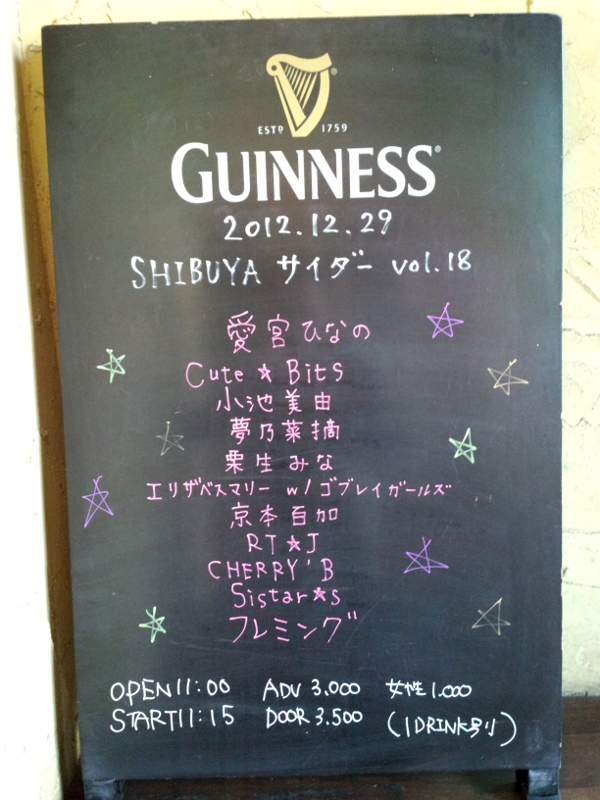 ESTD 1759
GUINNESS®
2012.12.29
SHIBUYA サイダー vol.18
愛宮ひなの
Cute★Bits
小池美由
夢乃菜摘
栗生みな
エリザベスマリー w/ゴブレイガールズ
京本百加
RT★J
CHERRY'B
Sistar★s
フレミング
OPEN11:00 ADV 3.000 女性1.000
START11:15 DOOR 3.500 (1DRINK別)